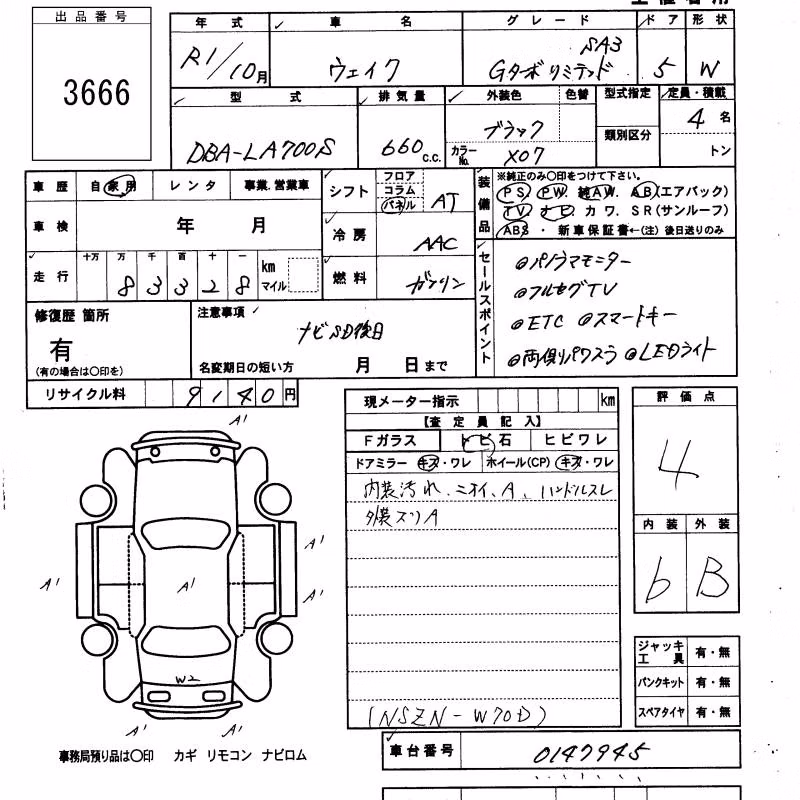 出品番号
3666
年式 車名 グレード ドア 形状
R1/10月 ウェイク Gターボリミテッド SA3 5 W
型式 排気量 外装色 色替 型式指定 定員・積載
DBA-LA700S 660 c.c. ブラック 類別区分 4名
カラーNo. X07 トン
車歴 自家用 レンタ 事業.営業車
車検 年 月
走行 十万 万 千 百 十 一 km マイル
8 3 3 2 8
シフト フロア コラム パネル AT
冷房 AAC
燃料 ガソリン
装備品
※純正のみ〇印をつけて下さい。
PS. PW. 純AW. AB(エアバック)
TV. ナビ. カワ. SR(サンルーフ)
ABS ・ 新車保証書←(注) 後日送りのみ
セールスポイント
◎パノラマモニター
◎フルセグTV
◎ETC ◎スマートキー
◎両側パワスラ ◎LEDライト
修復歴 箇所
有
(有の場合は〇印を)
注意事項
ナビSD後日
名変期日の短い方 月 日まで
リサイクル料 9140円
現メーター指示 km
【査定員記入】
Fガラス トビ石 ヒビワレ
ドアミラー キズ・ワレ ホイール(CP) キズ・ワレ
内装汚れ.ニオイ、A、ハンドルスレ
外装スリA
(NSZN-W70D)
評価点
4
内装 外装
b B
ジャッキ工具 有・無
パンクキット 有・無
スペアタイヤ 有・無
A1
A1
A1
A1
A1
W2
A1
A1
事務局預り品は〇印 カギ リモコン ナビロム
車台番号 0147945